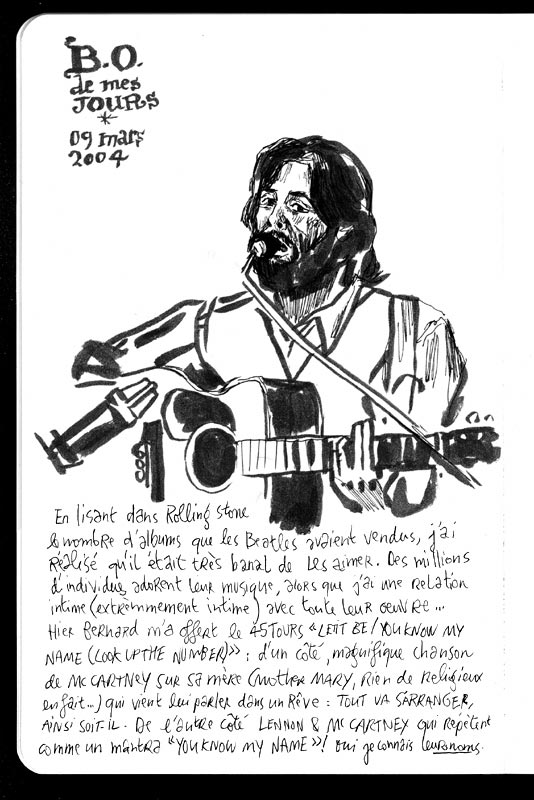 B.O.
de mes
JOURS
*
09 mars
2004
En lisant dans Rolling Stone
le nombre d'albums que les Beatles avaient vendus, j'ai
réalisé qu'il était très banal de les aimer. Des millions
d'individus adorent leur musique, alors que j'ai une relation
intime (extrèmmement intime) avec toute leur oeuvre...
Hier Bernard m'a offert le 45 TOURS «LET IT BE / YOU KNOW MY
NAME (LOOK UP THE NUMBER)» : d'un côté, magnifique chanson
de MCCARTNEY sur sa mère (MOTHER MARY, rien de religieux
en fait...) qui vient lui parler dans un rêve : TOUT VA S'ARRANGER,
AINSI SOIT-IL. De l'autre côté LENNON & MCCARTNEY qui répètent
comme un mantra «YOU KNOW MY NAME»! oui je connais leurs noms.